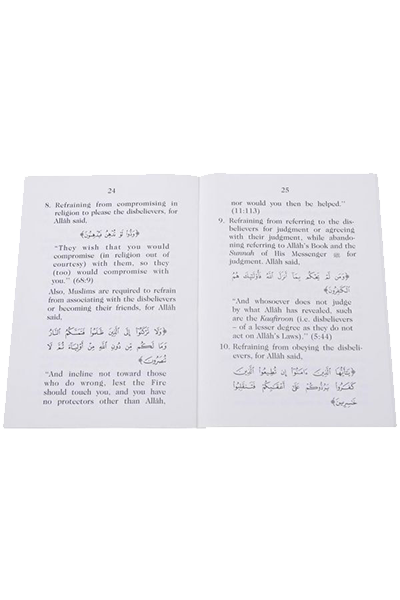 24
8. Refraining from compromising in
religion to please the disbelievers, for
Allâh said,
﴿وَدُّوا لَوْ تُدْهِنُ فَيُدْهِنُونَ﴾
“They wish that you would
compromise (in religion out of
courtesy) with them, so they
(too) would compromise with
you.” (68:9)
Also, Muslims are required to refrain
from associating with the disbelievers
or becoming their friends, for Allâh
said,
﴿وَلَا تَرْكَنُوا إِلَى الَّذِينَ ظَلَمُوا فَتَمَسَّكُمُ النَّارُ
وَمَا لَكُم مِّن دُونِ اللَّهِ مِنْ أَوْلِيَاءَ ثُمَّ لَا
تُنصَرُونَ﴾
“And incline not toward those
who do wrong, lest the Fire
should touch you, and you have
no protectors other than Allâh,
25
nor would you then be helped.”
(11:113)
9. Refraining from referring to the dis-
believers for judgment or agreeing
with their judgment, while abando-
ning referring to Allâh’s Book and the
Sunnah of His Messenger ﷺ for
judgment. Allâh said,
﴿وَمَن لَّمْ يَحْكُم بِمَا أَنزَلَ اللَّهُ فَأُولَٰئِكَ هُمُ
الْكَافِرُونَ﴾
“And whosoever does not judge
by what Allâh has revealed, such
are the Kaafiroon (i.e. disbelievers
– of a lesser degree as they do not
act on Allâh’s Laws).” (5:44)
10. Refraining from obeying the disbeli-
evers, for Allâh said,
﴿يَا أَيُّهَا الَّذِينَ آمَنُوا إِن تُطِيعُوا الَّذِينَ
كَفَرُوا يَرُدُّوكُمْ عَلَىٰ أَعْقَابِكُمْ فَتَنقَلِبُوا
خَاسِرِينَ﴾